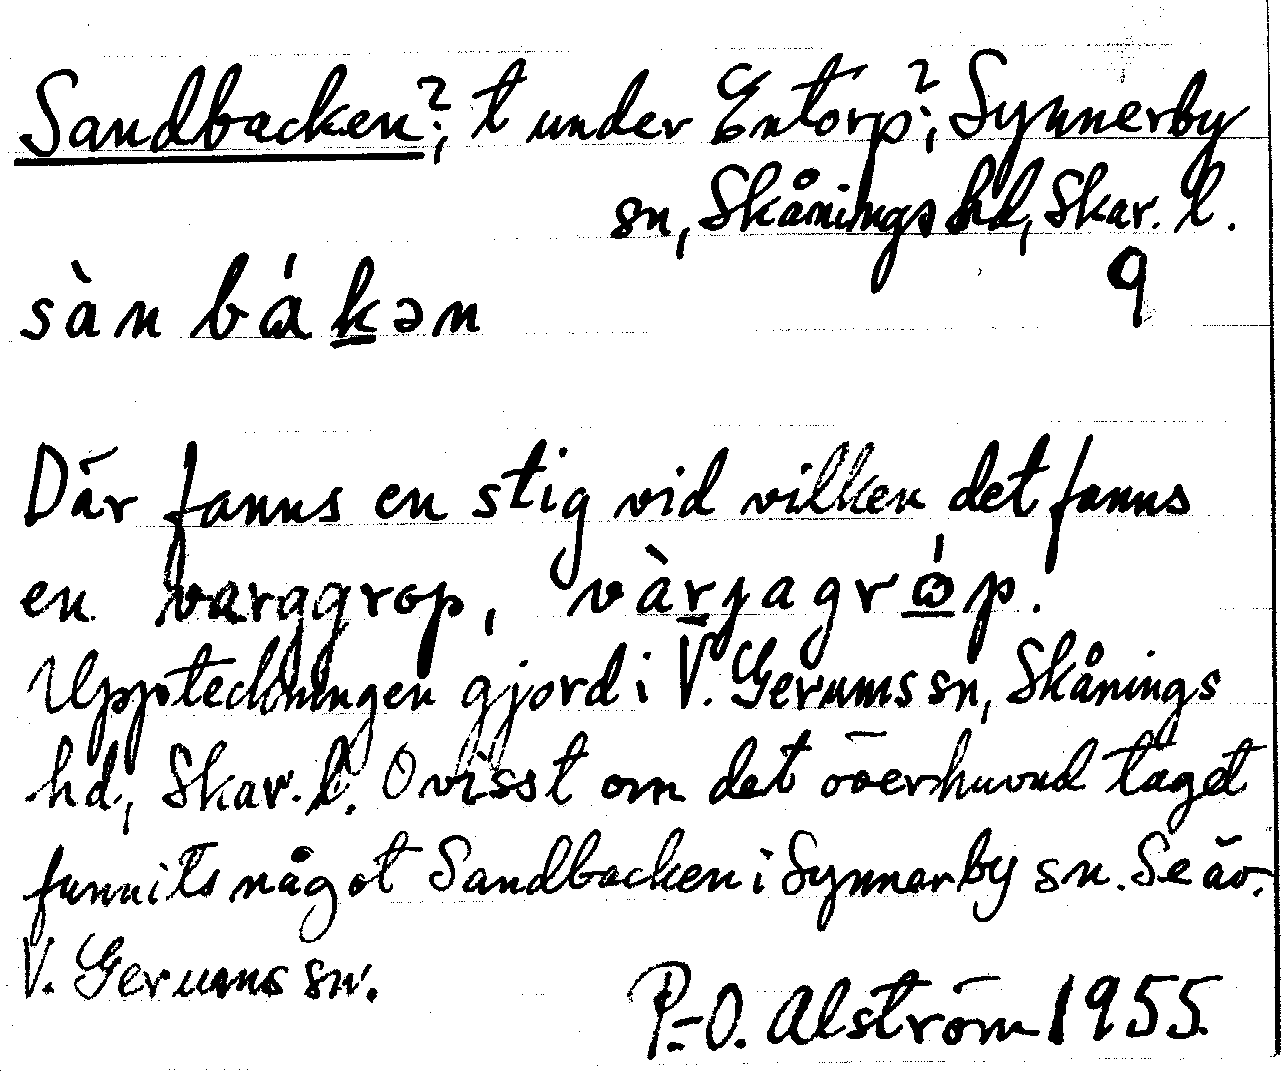 Sandbacken?; t under Entorp?; Synnerby
sn, Skånings hd, Skar. l.
9
sàn bákən
Där fanns en stig vid vilken det fanns
en varggrop, vàrjagrώp.
Uppteckningen gjord i V. Gerums sn, Skånings
hd, Skar. l. Ovisst om det överhuvud taget
funnits något Sandbacken i Synnerby sn. Se äv.
V. Gerums sn.
P.-O. Alström 1955.